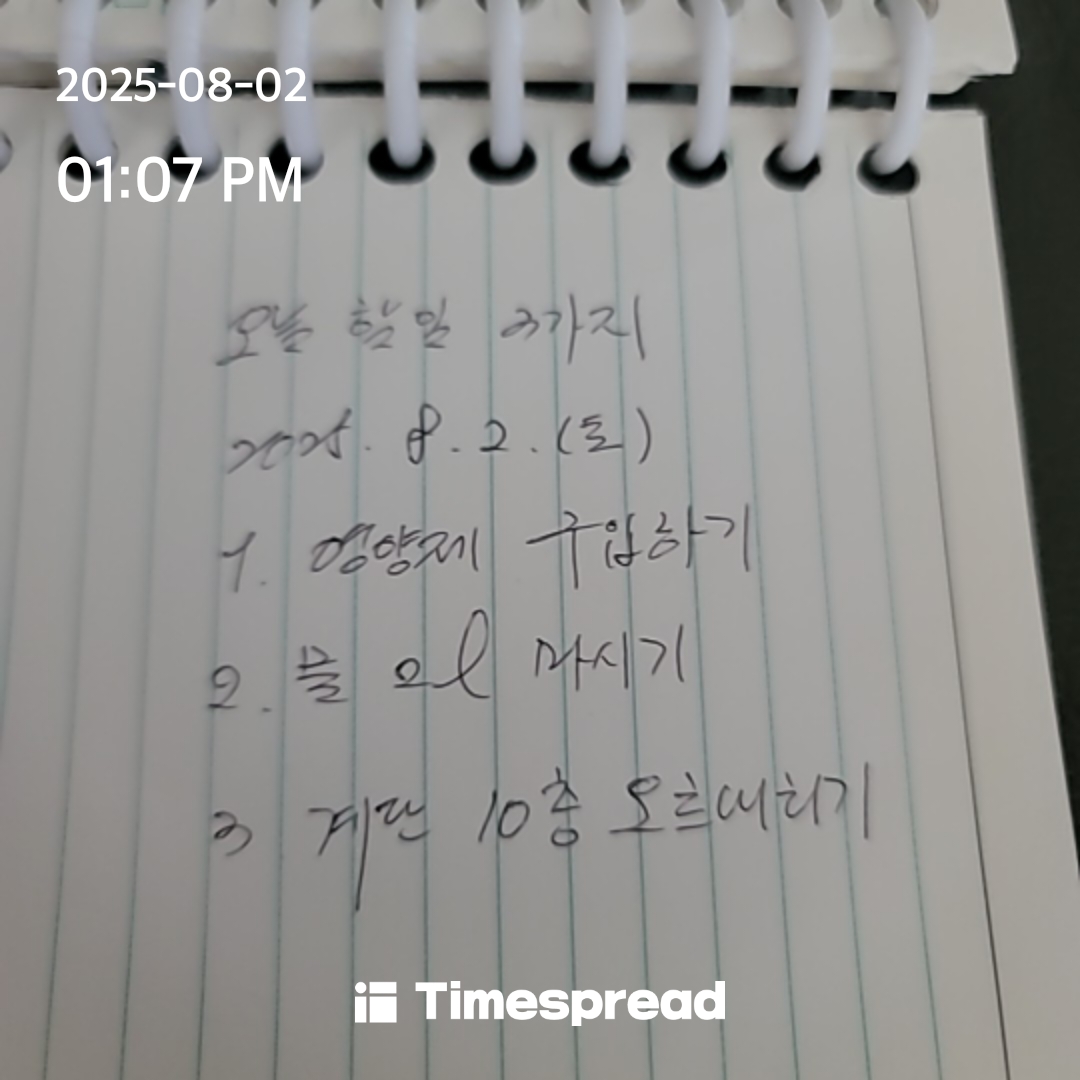 2025-08-02
01:07 PM
오늘 할일 3가지
2025. 8. 2. (토)
1. 영양제 구입하기
2. 물 2l 마시기
3 계단 10층 오르내리기
Timespread